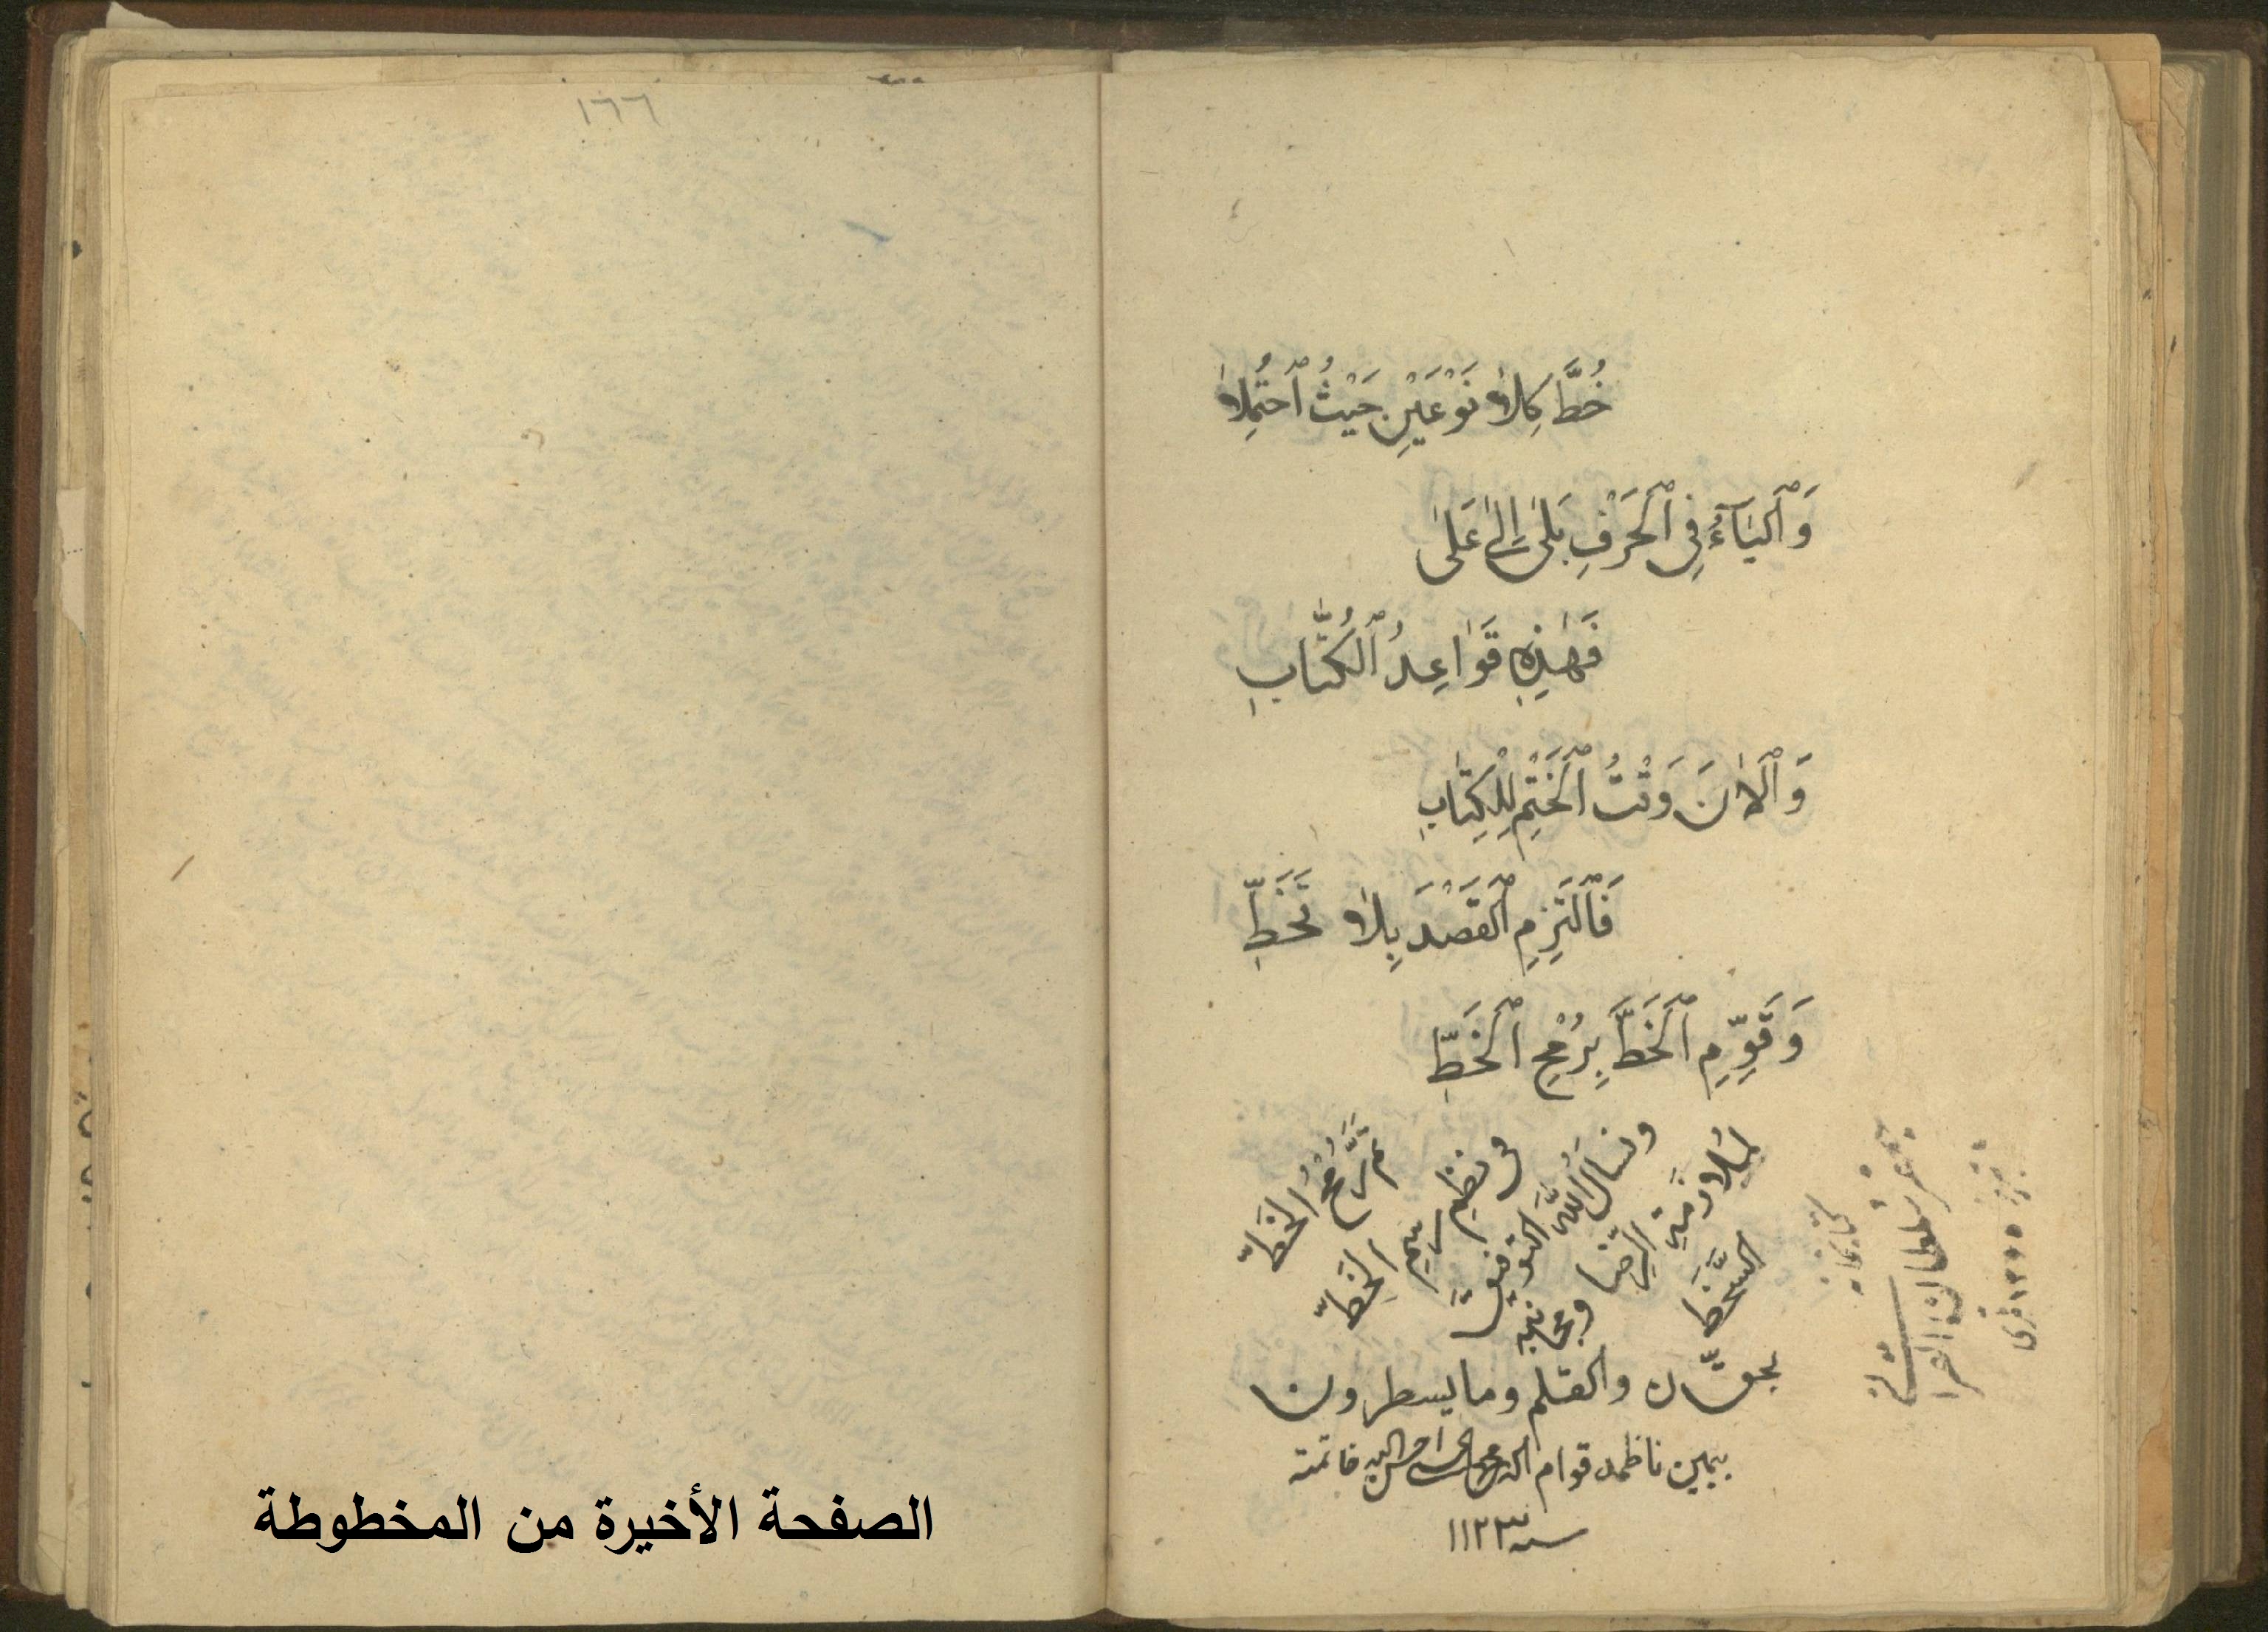 خُطَّ كِلَا نَوْعَيْنِ حَيْثُ ٱحْتُمِلَا
وَٱلْيَآءُ فِي ٱلْحَرْفِ بَلَىٰ إِلَىٰ عَلَىٰ
فَهٰذِهِ قَوَاعِدُ ٱلْكُتَّابِ
وَٱلْاٰنَ وَقْتُ ٱلْخَتْمِ لِلْكِتَابِ
فَٱلْتَزِمِ ٱلْقَصْدَ بِلَا تَخَطِّ
وَقَوِّمِ ٱلْخَطَّ بِرُمْحِ ٱلْخَطِّ
تَمَّ رُمْحُ الْخَطِّ
فى نظم رسم الخَطِّ
ونسال اللهَ التوفيق
لملازمة الرِّضا ومجانبة
السَّخَط
بحقّ ن والقلم وما يسطرون
بيمين ناظمه قوام الدين
سنة ١١٢٣
كتابخانه
جعفر سلطان القرائى
تبريز
١٦٦
الصفحة الأخيرة من المخطوطة